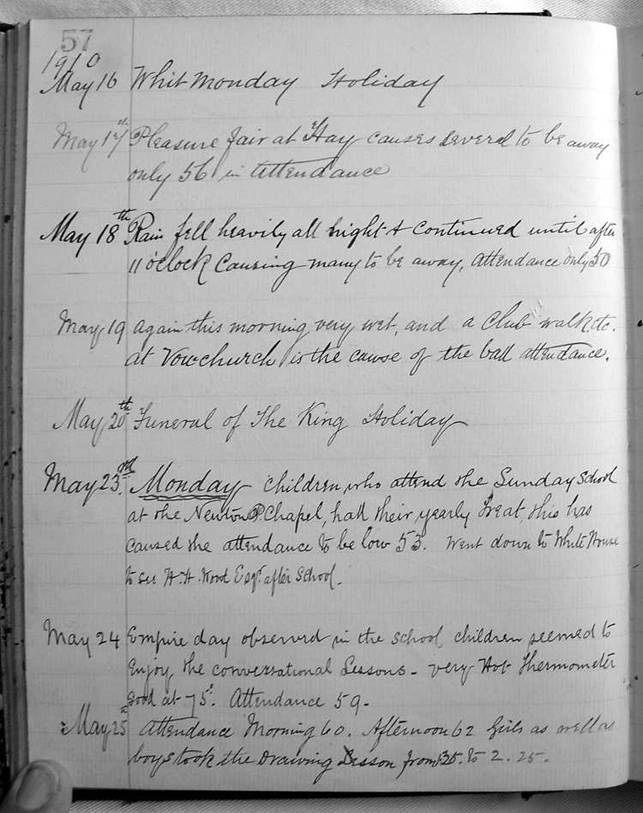 57
1910
May 16 Whit Monday Holiday
May 17th Pleasure fair at Hay causes several to be away
only 56 in attendance
May 18th Rain fell heavily all night & continued until after
11 o'clock causing many to be away, Attendance only 50
May 19 Again this morning very wet, and a Club walk etc.
at Vowchurch is the cause of the bad attendance.
May 20th Funeral of The King Holiday
May 23rd. Monday Children who attend the Sunday School
at the Newton P. Chapel, had their yearly Treat, this has
caused the attendance to be low 53. Went down to White House
to see H. H. Wood Esqr. after School.
May 24 Empire day observed in the school, children seemed to
Enjoy the conversational Lessons - very Hot Thermometer
stood at 75°. Attendance 59.
May 25th Attendance Morning 60. Afternoon 62 Girls as well as
boys took the Drawing Lesson from to 2. 25.